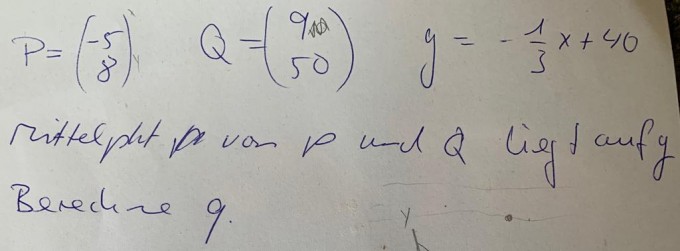 P = (-5 8) Q = (q 50) y = -1/3 x + 40
Mittelpkt von P und Q liegt auf y
Berechne q.
y